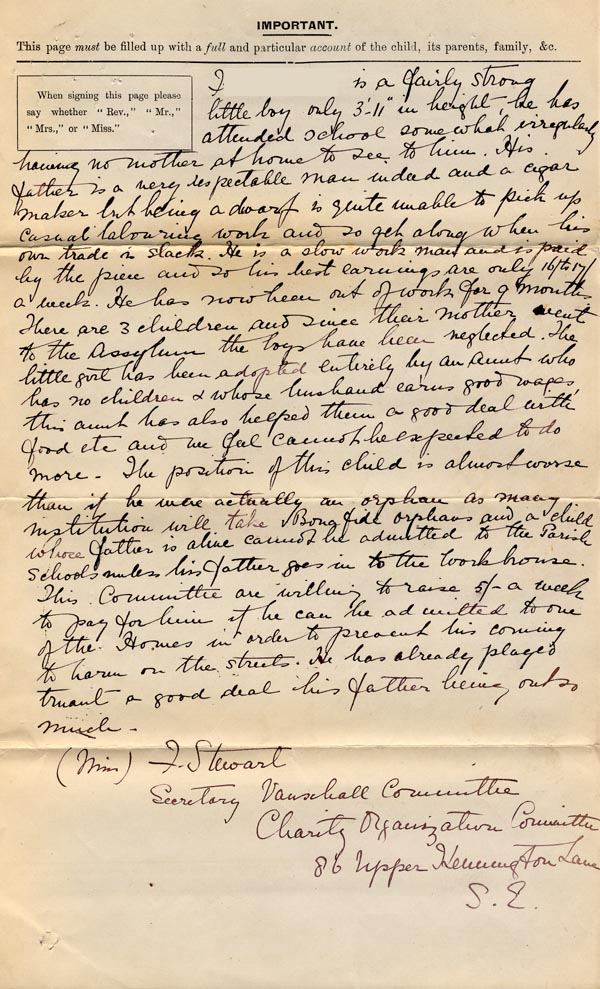 IMPORTANT.
This page must be filled up with a full and particular account of the child, its parents, family, &c.
When signing this page please
say whether "Rev.," "Mr.,"
"Mrs.," or "Miss."
I is a fairly strong
little boy only 3'·11" in height, he has
attended school somewhat irregularly
having no mother at home to see to him. His
father is a very respectable man indeed and a cigar
maker but being a dwarf is quite unable to pick up
casual labouring work and so get along when his
own trade is slack. He is a slow work man and is paid
by the piece and so his best earnings are only 16/ to 17/
a week. He has now been out of work for 9 months.
There are 3 children and since their mother went
to the Assylum the boys have been neglected. The
little girl has been adopted entirely by an aunt who
has no children & whose husband earns good wages,
this aunt has also helped them a good deal with
food etc and we feel cannot be expected to do
more - The position of this child is almost worse
than if he were actually an orphan as many
institution will take Bona fide orphans and a child
whose father is alive cannot be admitted to the Parish
Schools unless his father goes in to the Workhouse.
This Committee are willing to raise 5/- a week
to pay for him if he can be admitted to one
of the Homes in order to prevent his coming
to harm on the streets. He has already played
truant a good deal his father being out so
much -
(Miss) F. Stewart
Secretary Vauxhall Committee
Charity Organization Committee
86 Upper Kennington Lane
S.E.